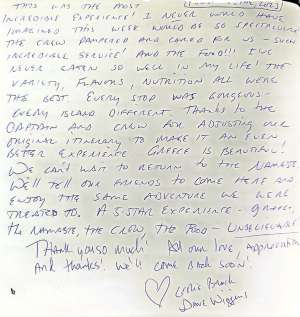 THIS WAS THE MOST
INCREDIBLE EXPERIENCE! I NEVER WOULD HAVE
IMAGINED THIS WEEK WOULD BE SO SPECTACULAR
THE CREW PAMPERED AND CARED FOR US SUCH
INCREDIBLE SERVICE! AND THE FOOD!!! I'VE
NEVER EATEN SO WELL IN MY LIFE! THE
VARIETY, FLAVORS, NUTRITION ALL WERE
THE BEST. EVERY STOP WAS GORGEOUS-
EVERY ISLAND DIFFERENT. THANKS TO THE
CAPTAIN AND CREW FOR ADJUSTING OUR
ORIGINAL ITINERARY TO MAKE IT AN EVEN
BETTER EXPERIENCE. GREECE IS BEAUTIFUL!
WE CAN'T WAIT TO RETURN TO THE NAMASTE
WE'LL TELL OUR FRIENDS TO COME HERE AND
ENJOY THE SAME ADVENTURE WE WERE
TREATED TO. A 5-STAR EXPERIENCE - GREECE,
THE NAMASTE, THE CREW, THE FOOD - UNBELIEVABLE!
Thank you so much! All our love, appreciation
And thanks! We'll come back soon!
Leslie
Dave Wiggins